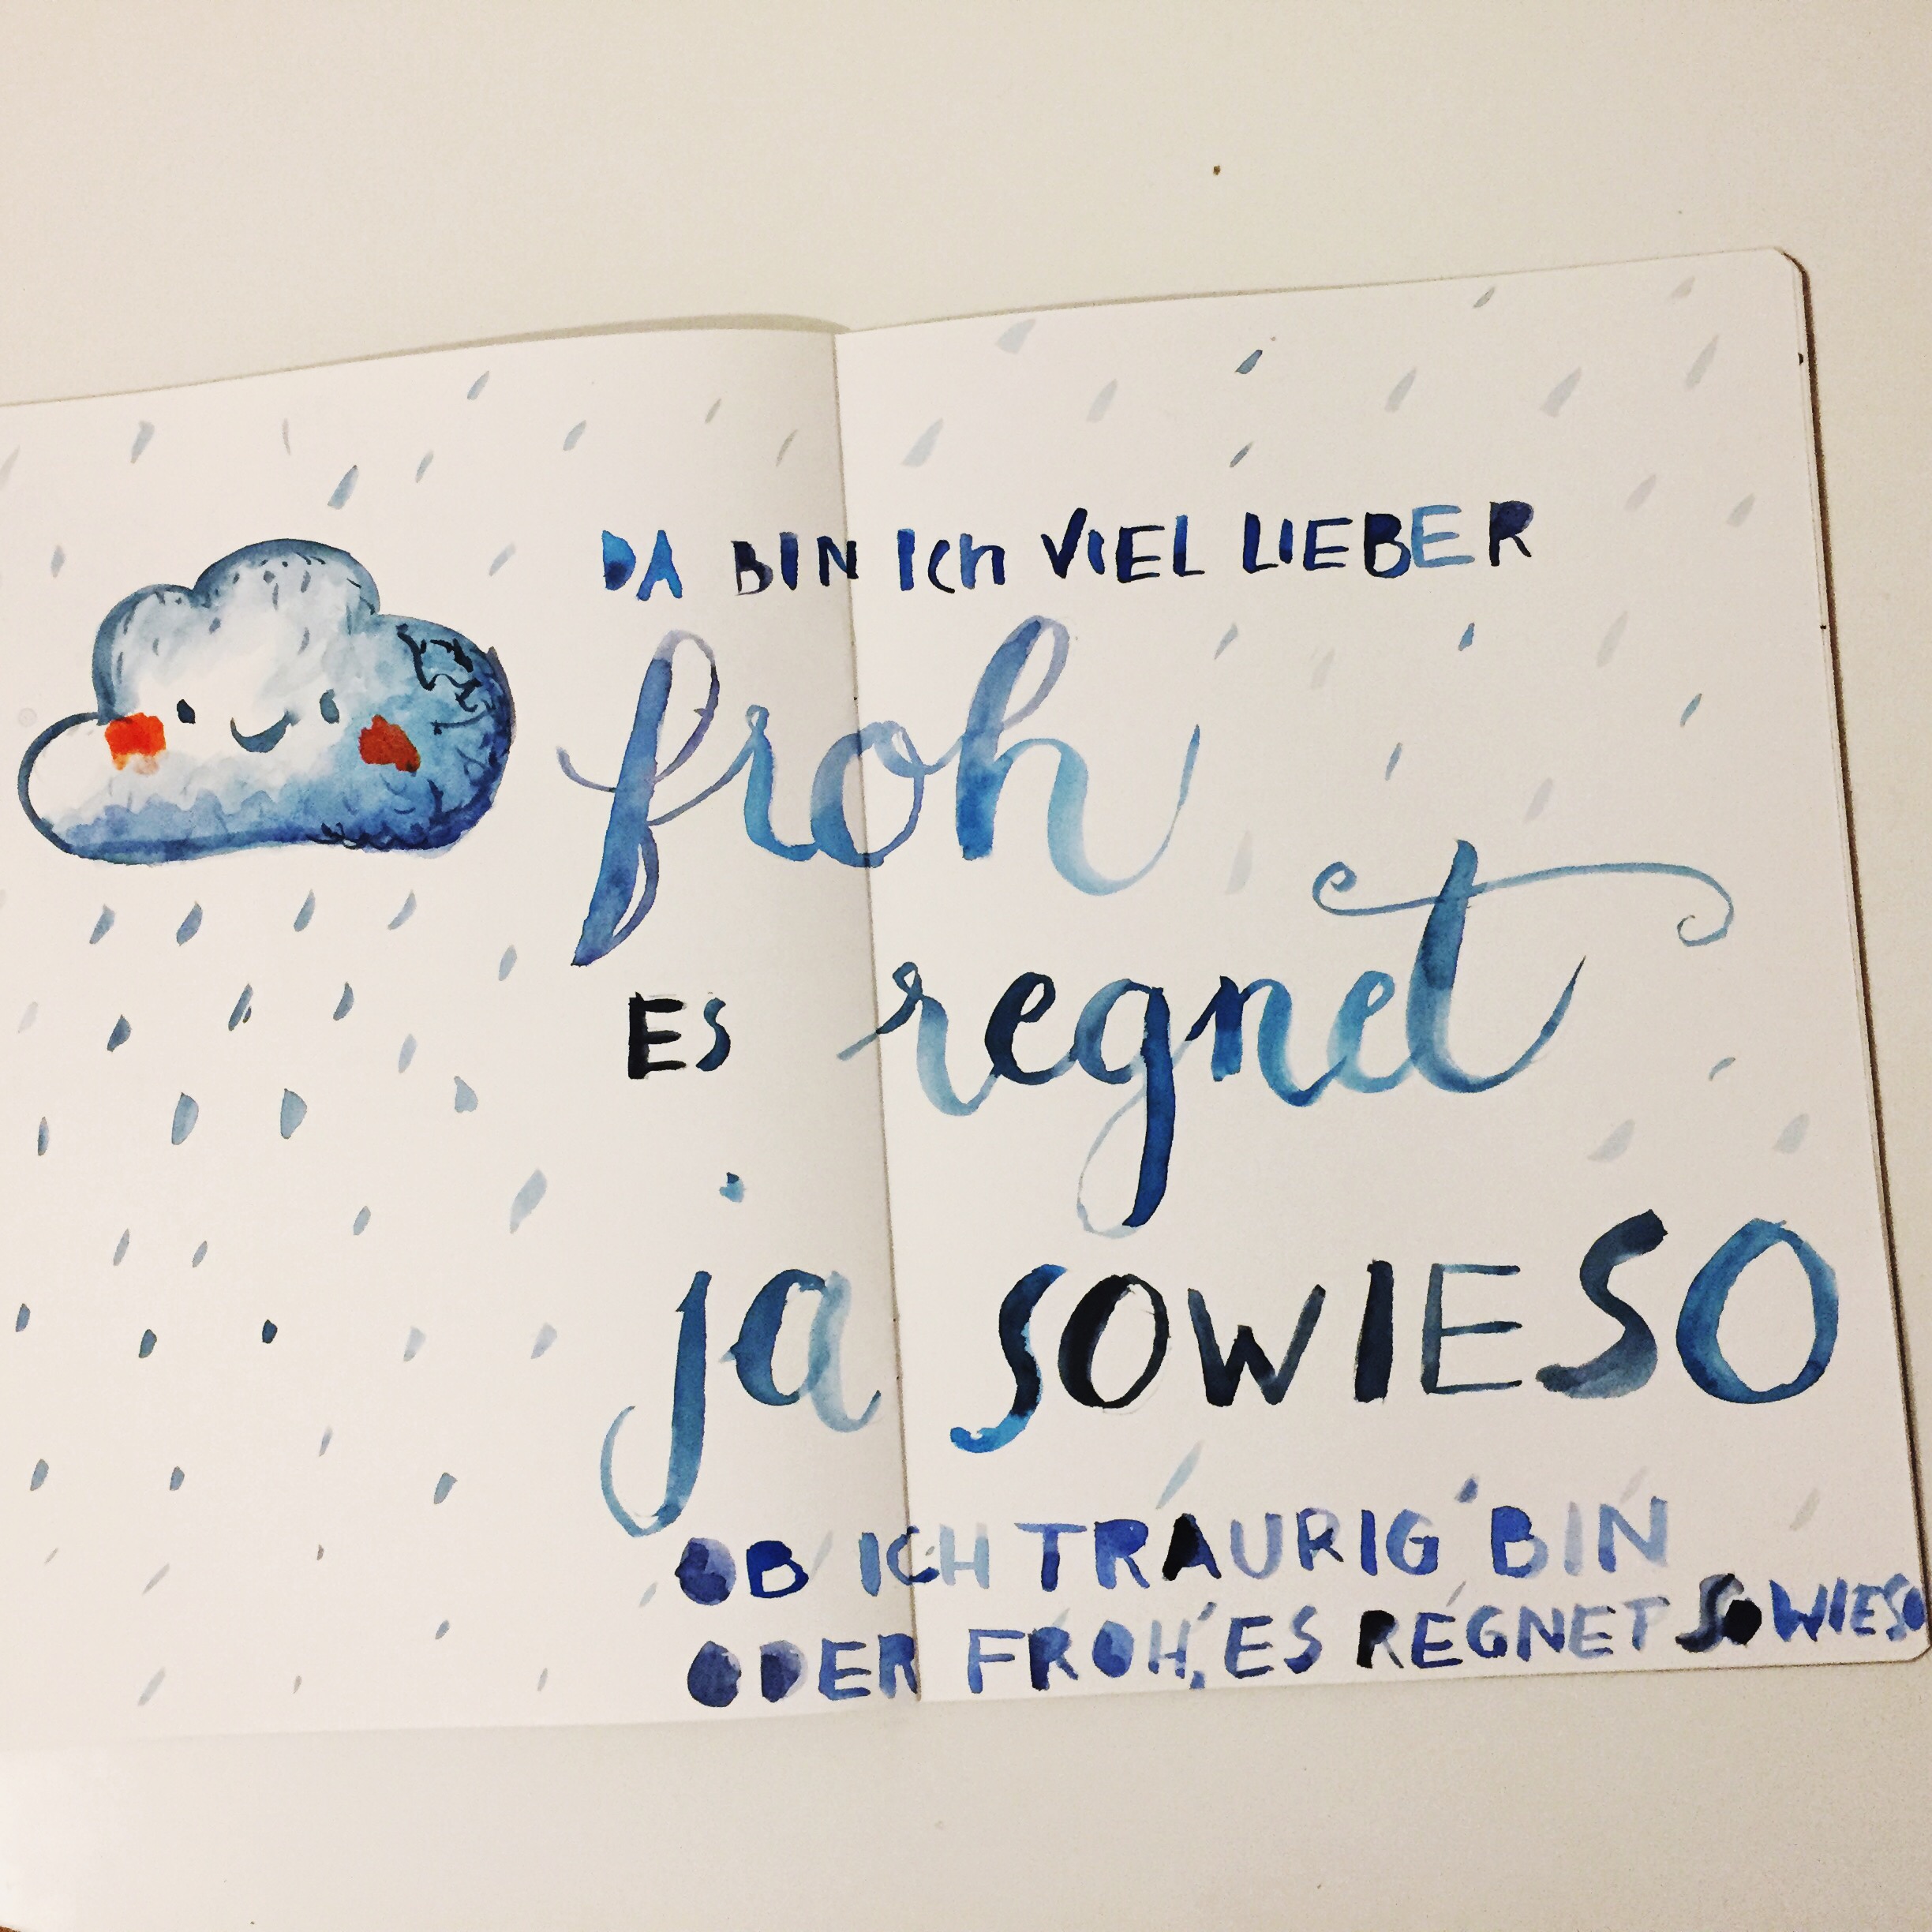 DA BIN ICH VIEL LIEBER
froh
ES regnet
ja SOWIESO
OB ICH TRAURIG BIN
ODER FROH, ES REGNET SOWIESO